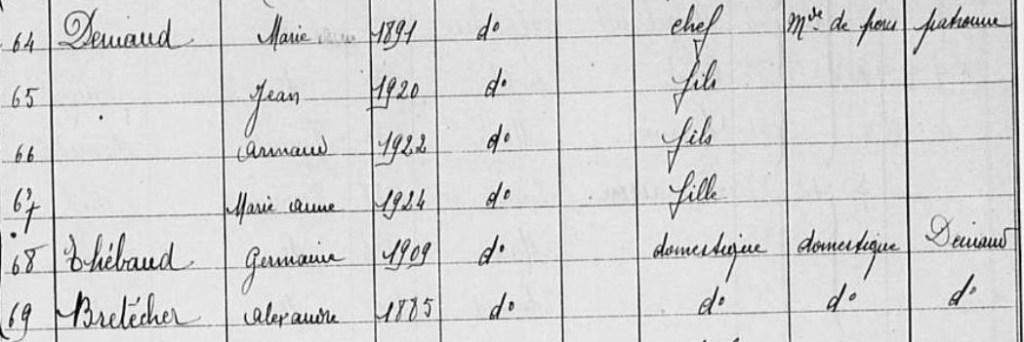 64 Deniaud Marie 1891 do chef Mde de porcs patronne
65 Jean 1920 do fils
66 Armand 1922 do fils
67 Marie Anne 1924 do fille
68 Thébaud Germaine 1909 do domestique domestique Deniaud
69 Bretécher Alexandre 1885 do do do do